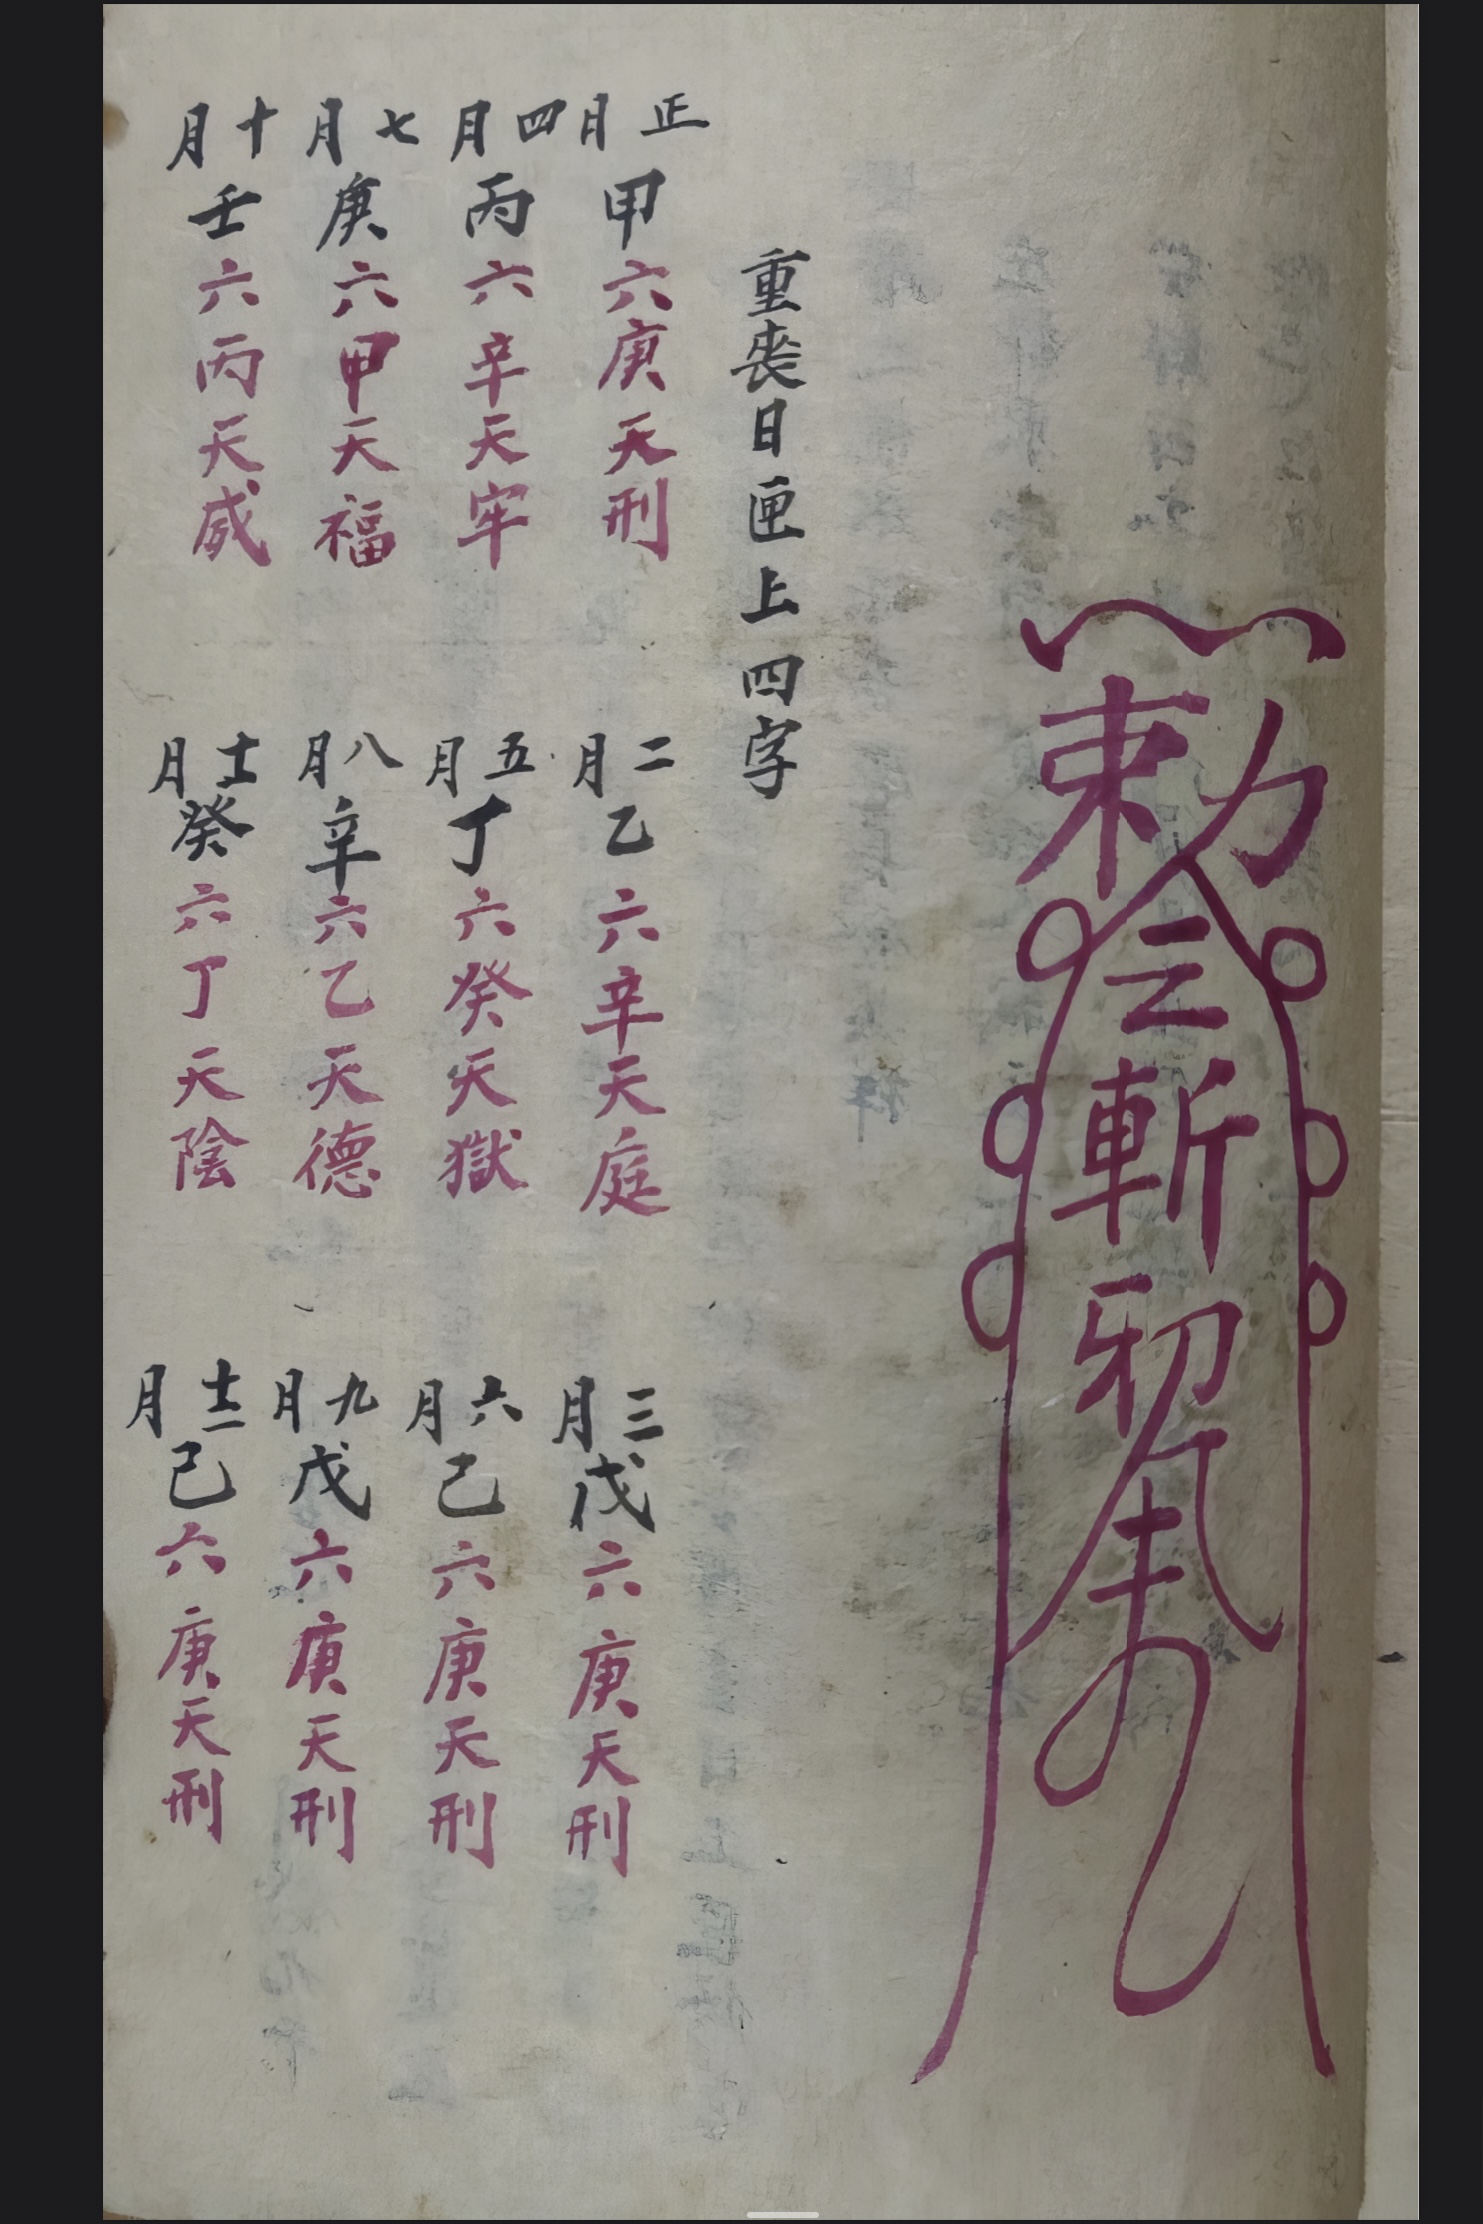 勅令斬邪
重喪日匣上四字
正月甲六庚天刑
二月乙六辛天庭
三月戊六庚天刑
四月丙六辛天牢
五月丁六癸天獄
六月己六庚天刑
七月庚六甲天福
八月辛六乙天德
九月戊六庚天刑
十月壬六丙天威
十一月癸六丁天陰
十二月己六庚天刑